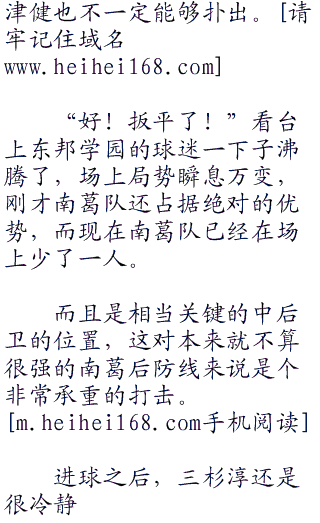 津健也不一定能够扑出。[请
牢记住域名
www.heihei168.com]
“好！扳平了！”看台
上东邦学园的球迷一下子沸
腾了，场上局势瞬息万变，
刚才南葛队还占据绝对的优
势，而现在南葛队已经在场
上少了一人。
而且是相当关键的中后
卫的位置，这对本来就不算
很强的南葛后防线来说是个
非常承重的打击。
[m.heihei168.com手机阅读]
进球之后，三杉淳还是
很冷静